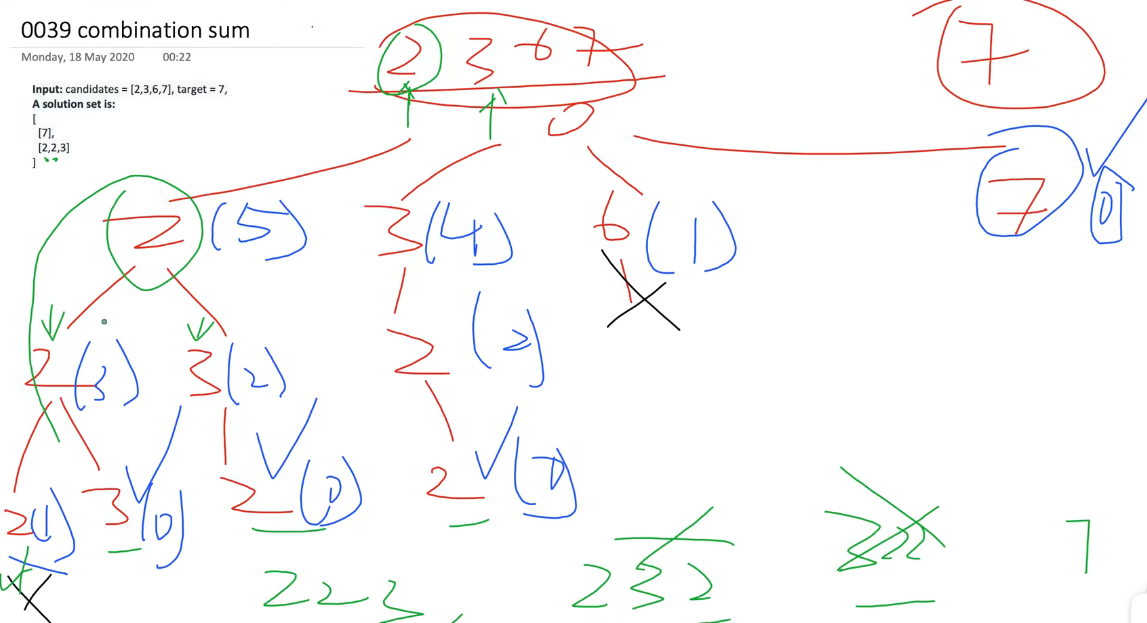 0039 combination sum
Monday, 18 May 2020 00:22
Input: candidates = [2,3,6,7], target = 7,
A solution set is:
[
[7],
[2,2,3]
]
2 3 6 7
7
0
2 (5) 3 (4) 6 (1) 7 0
2 (3) 3 (2) 2 (2)
2 (1) 3 (0) 2 (0) 2
2 2 3, 2 3 2 3 2 2 7